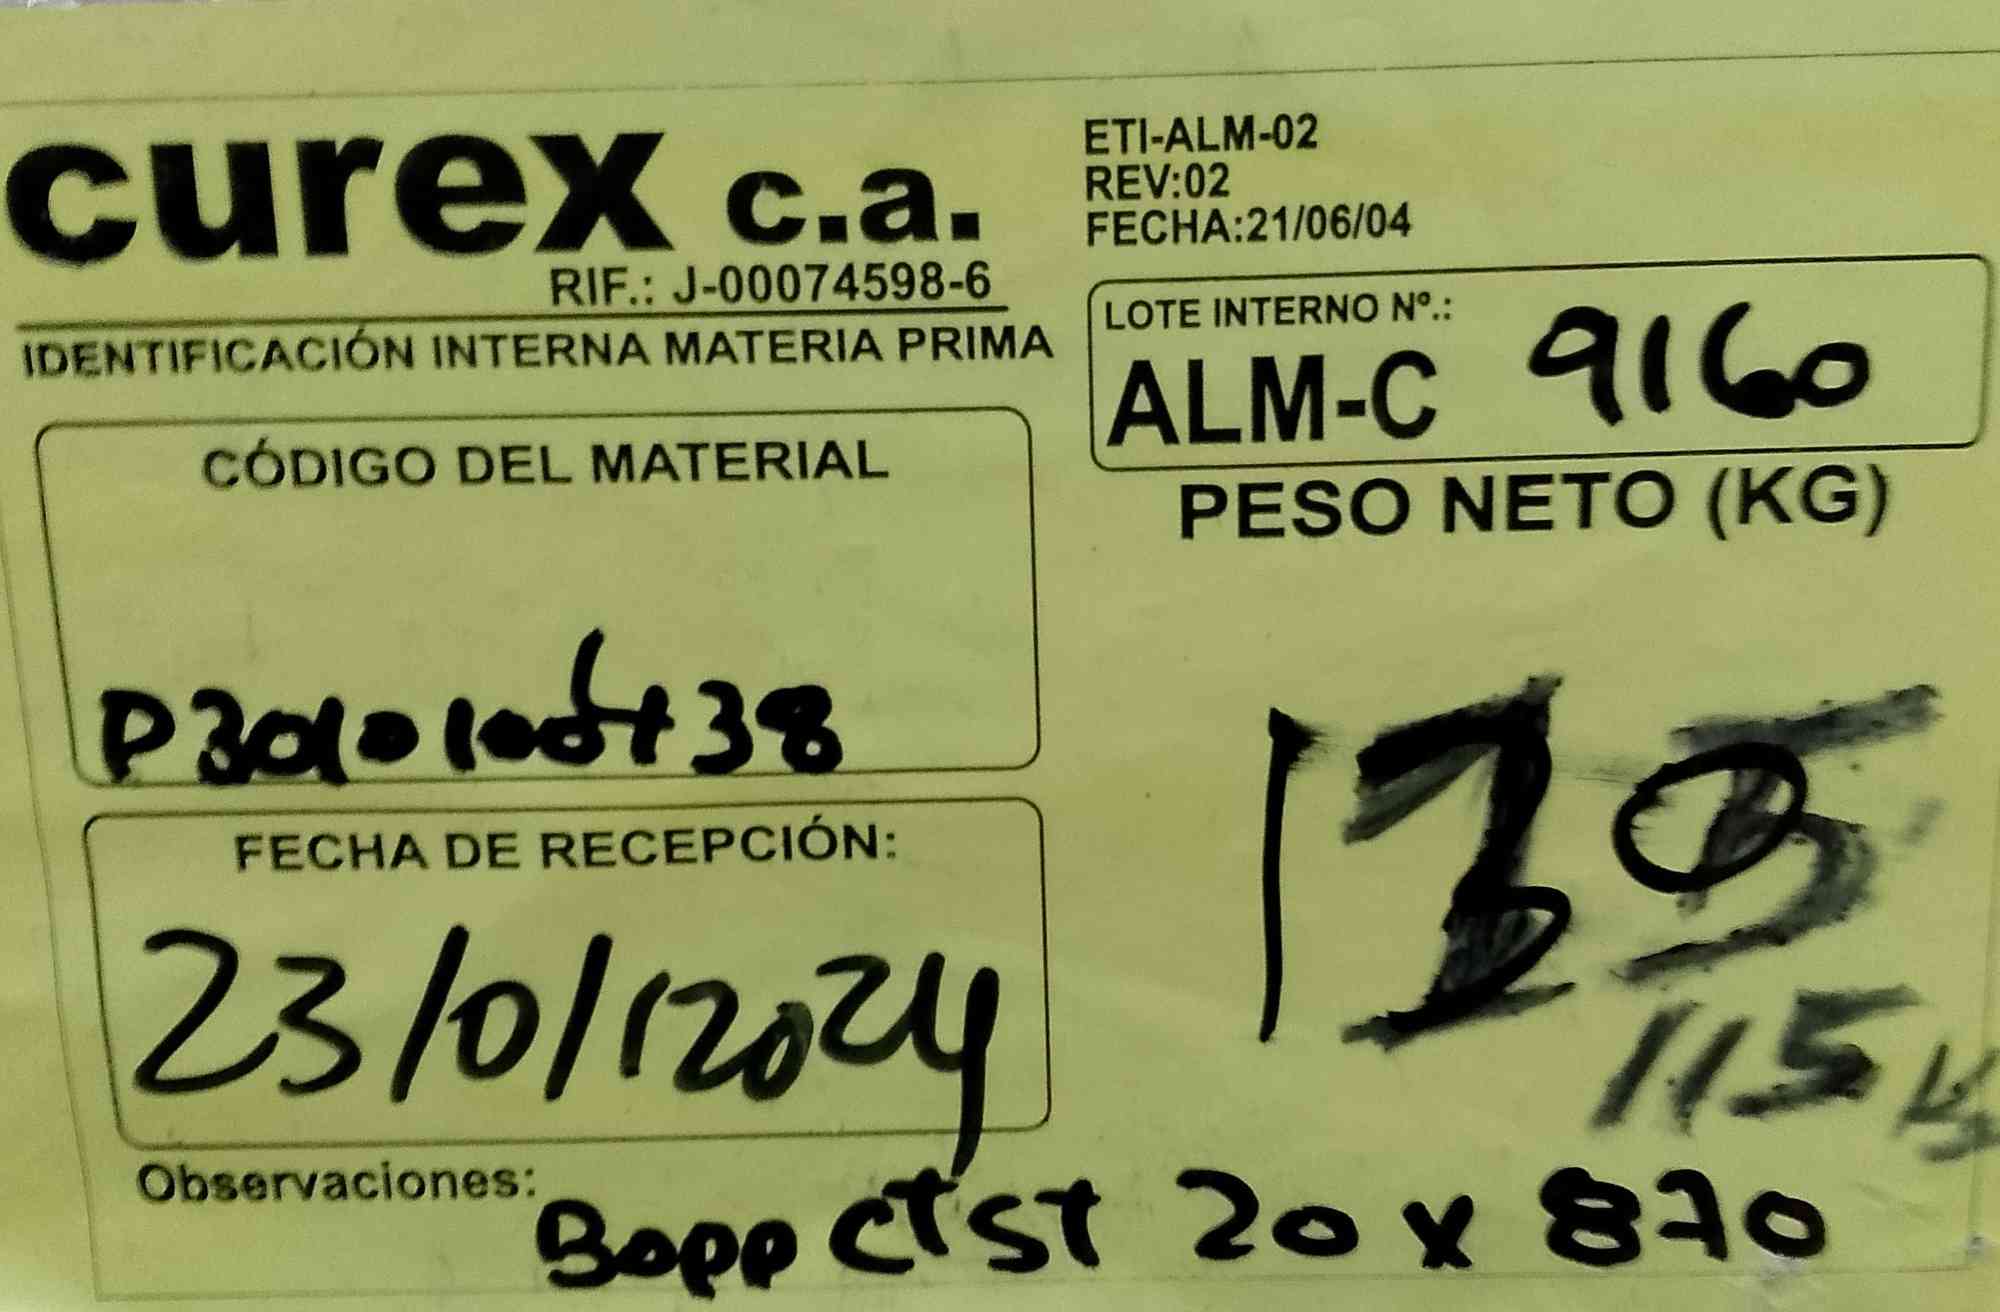 curex c.a.
RIF.: J-00074598-6
IDENTIFICACIÓN INTERNA MATERIA PRIMA
ETI-ALM-02
REV:02
FECHA:21/06/04
LOTE INTERNO Nº.:
ALM-C 9160
CÓDIGO DEL MATERIAL
PESO NETO (KG)
FECHA DE RECEPCIÓN:
23/01/2024
115 Kg
Observaciones:
Bopp CTST 20 x 870